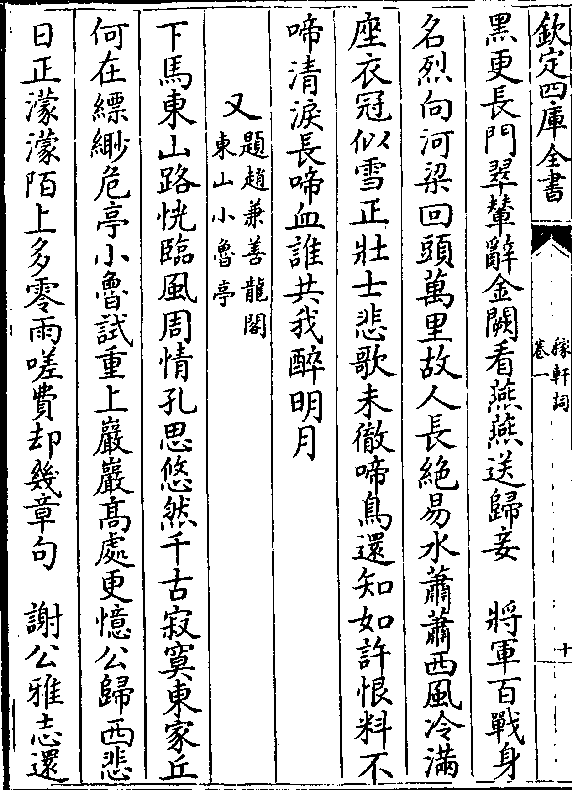 欽定四庫全書
稼軒詞
卷一
十
黑更長門翠輦辭金闕看燕燕送歸妾　將軍百戰身
名烈向河梁回頭萬里故人長絶易水蕭蕭西風冷滿
座衣冠似雪正壯士悲歌未徹啼鳥還知如許恨料不
啼清淚長啼血誰共我醉明月
又題趙兼善龍閣
東山小魯亭
下馬東山路恍臨風周情孔思悠然千古寂寞東家丘
何在縹緲危亭小魯試重上巖巖髙處更憶公歸西悲
日正濛濛陌上多零雨嗟費却幾章句　謝公雅志還